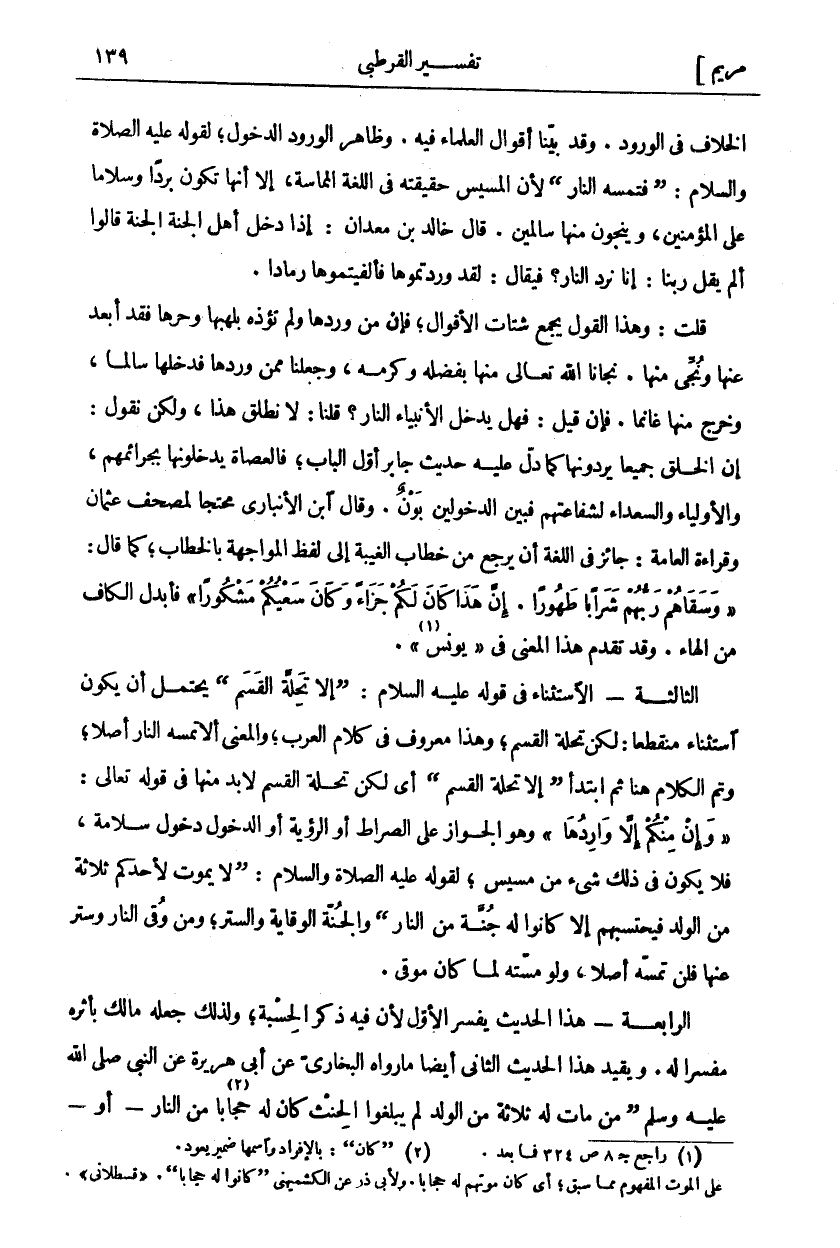 مريم ] تفسير القرطبى ١٣٩
الخلاف فى الورود . وقد بيّنا أقوال العلماء فيه . وظاهر الورود الدخول؛ لقوله عليه الصلاة
والسلام : ”فتمسه النار“ لأن المسيس حقيقته فى اللغة المماسة، إلا أنها تكون بردًا وسلاما
على المؤمنين، وينجون منها سالمين . قال خالد بن معدان : إذا دخل أهل الجنة الجنة قالوا
ألم يقل ربنا : إنا نرد النار؟ فيقال : لقد وردتموها فألفيتموها رمادا .
قلت : وهذا القول يجمع شتات الأقوال؛ فإن من وردها ولم تؤذه بلهبها وحرها فقد أبعد
عنها ونُجِّى منها . نجانا الله تعالى منها بفضله وكرمه ، وجعلنا ممن وردها فدخلها سالما ،
وخرج منها غانما . فإن قيل : فهل يدخل الأنبياء النار؟ قلنا : لا نطلق هذا ، ولكن نقول :
إن الخلق جميعا يردونها كما دلّ عليه حديث جابر أوّل الباب؛ فالعصاة يدخلونها بجرائمهم ،
والأولياء والسعداء لشفاعتهم فبين الدخولين بَوْنٌ . وقال آبن الأنبارى محتجا لمصحف عثمان
وقراءة العامة : جائز فى اللغة أن يرجع من خطاب الغيبة إلى لفظ المواجهة بالخطاب؛ كما قال :
« وَسَقَاهُمْ رَبُّهُمْ شَرَابًا طَهُورًا . إِنَّ هَذَا كَانَ لَكُمْ جَزَاءً وَكَانَ سَعْيُكُمْ مَشْكُورًا» فأبدل الكاف
من الهاء . وقد تقدم هذا المعنى فى « يونس(١) » .
الثالثة — الآستثناء فى قوله عليه السلام : ”إلا تَحِلَّة القَسَم “ يحتمل أن يكون
آستثناء منقطعا : لكن تحلة القسم؛ وهذا معروف فى كلام العرب؛ والمعنى ألا تمسه النار أصلا؛
وتم الكلام هنا ثم ابتدأ ” إلا تحلة القسم “ أى لكن تحلة القسم لابد منها فى قوله تعالى :
« وَإِنْ مِنْكُمْ إِلَّا وَارِدُهَا » وهو الجواز على الصراط أو الرؤية أو الدخول دخول سلامة ،
فلا يكون فى ذلك شىء من مسيس ؛ لقوله عليه الصلاة والسلام : ”لا يموت لأحدكم ثلاثة
من الولد فيحتسبهم إلا كانوا له جُنَّة من النار “ والجُنّة الوقاية والستر؛ ومن وُقى النار وستر
عنها فلن تمسّه أصلا ، ولو مسّته لما كان موقى .
الرابعة — هذا الحديث يفسر الأوّل لأن فيه ذكر الحِسْبة؛ ولذلك جعله مالك بأثره
مفسرا له . ويقيد هذا الحديث الثانى أيضا مارواه البخارىّ عن أبى هريرة عن النبى صلى الله
عليه وسلم ”من مات له ثلاثة من الولد لم يبلغوا الحِنْث كان له حجابا(٢) من النار — أو —
(١) راجع جـ ٨ ص ٣٢٤ فما بعد . (٢) ”كان“ : بالإفراد وآسمها ضمير يعود
على الموت المفهوم مما سبق؛ أى كان موتهم له حجابا . ولأبى ذر عن الكشميهنى ”كانوا له حجابا“ . «قسطلانى» .